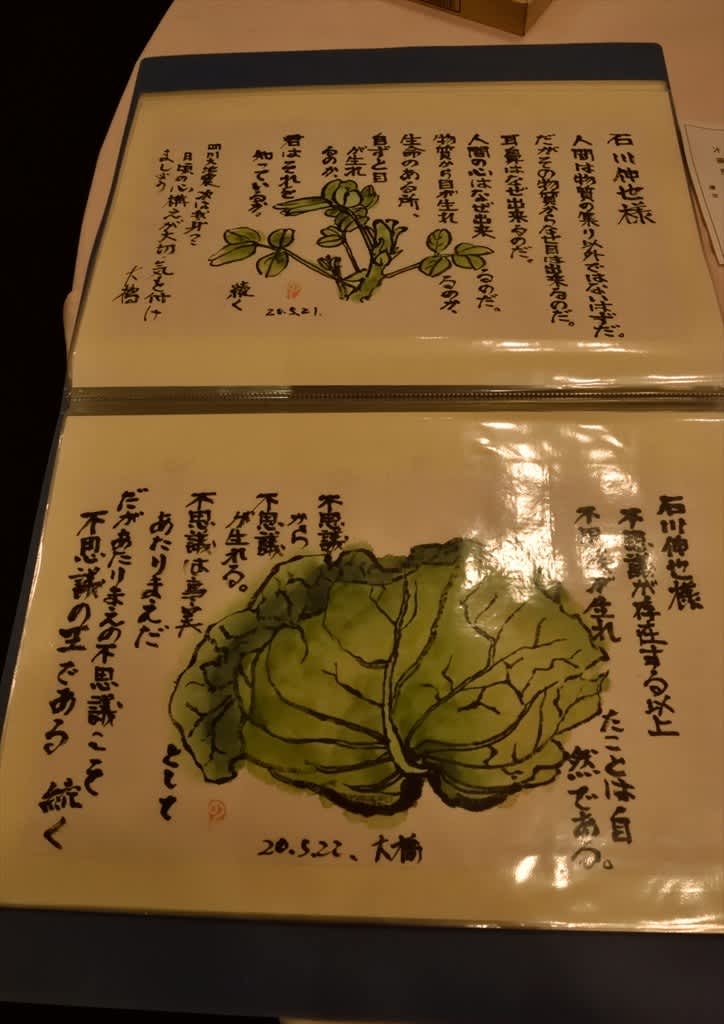 石川伸也様
人間は物質の集り以外ではないはずだ。
だがその物質から
耳鼻はなぜ出来るのだ。
人間の心はなぜ出来るのだ。
物質から目が生れるのか、
生命のある所、
自ずと目
が生れ
るのか、
君はそれを
知っているか。
続く
20.5.21.
日頃の心構えが大切 気を付け
ましょう
大橋
石川伸也様
不思議が存在する以上
不思議が生れ
たことは自
然である。
不思議
から
不思議
が生れる。
不思議は事実
として
あたりまえだ
だがあたりまえの不思議こそ
不思議の王である 続く
20.5.22、大橋